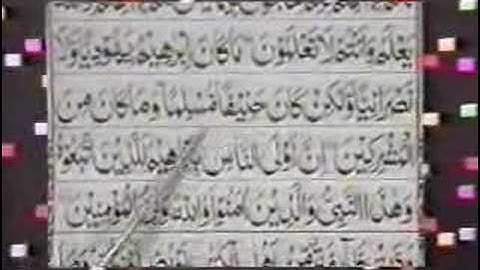 يَعْلَمُ وَاَنْتُمْ لَا تَعْلَمُوْنَ مَا كَانَ اِبْرٰهِيْمُ يَهُوْدِيًّا وَّلَا
نَصْرَانِيًّا وَّلٰكِنْ كَانَ حَنِيْفًا مُّسْلِمًا وَمَا كَانَ مِنَ
الْمُشْرِكِيْنَ اِنَّ اَوْلَى النَّاسِ بِاِبْرٰهِيْمَ لَلَّذِيْنَ اتَّبَعُوْهُ
وَهٰذَا النَّبِيُّ وَالَّذِيْنَ اٰمَنُوْا وَاللّٰهُ وَلِيُّ الْمُؤْمِنِيْنَ